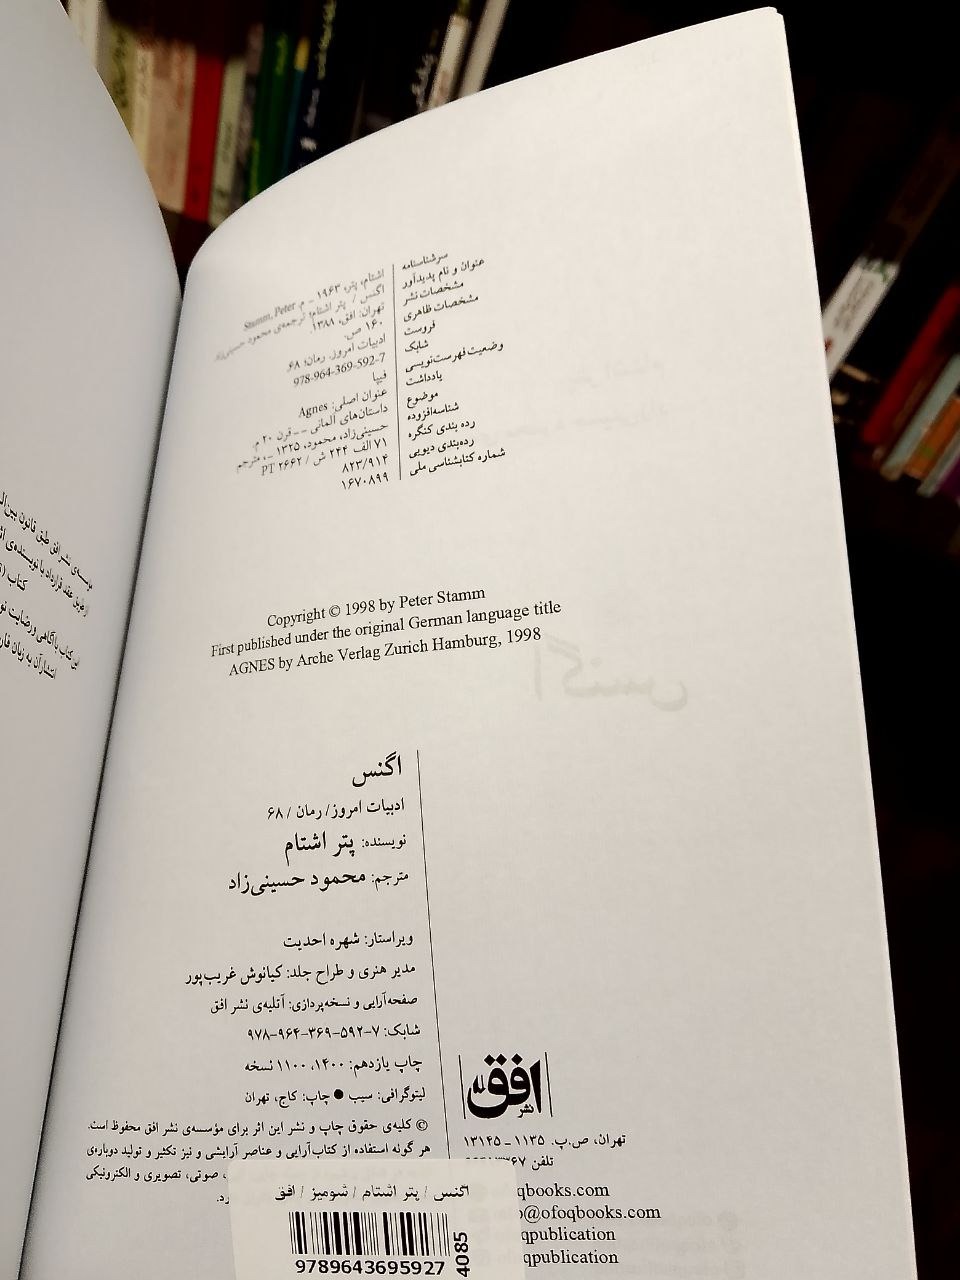 سرشناسنامه اشتام، پتر، ۱۹۶۳ - م. Stamm, Peter
عنوان و نام پدیدآور اگنس / پتر اشتام؛ ترجمه‌ی محمود حسینی‌زاد.
مشخصات نشر تهران: افق، ۱۳۸۸.
مشخصات ظاهری ۱۶۰ ص.
فروست ادبیات امروز. رمان؛ ۶۸.
شابک 978-964-369-592-7
وضعیت فهرست‌نویسی فیپا
یادداشت عنوان اصلی: Agnes
موضوع داستان‌های آلمانی -- قرن ۲۰ م.
شناسه‌افزوده حسینی‌زاد، محمود، ۱۳۲۵ -، مترجم
رده بندی کنگره PT ۲۶۶۲ / ش ۲۴۴ الف ۷۱
رده‌بندی دیویی ۸۲۳/۹۱۴
شماره کتابشناسی ملی ۱۶۷۰۸۹۹
مؤسسه‌ی نشر افق طبق قانون بین‌الم
از طریق عقد قرارداد با نویسنده‌ی اثر
کتاب
این کتاب با آگاهی و رضایت نو
انتشار آن به زبان فار
Copyright © 1998 by Peter Stamm
First published under the original German language title
AGNES by Arche Verlag Zurich Hamburg, 1998
اگنس
ادبیات امروز/ رمان / ۶۸
نویسنده: پتر اشتام
مترجم: محمود حسینی‌زاد
ویراستار: شهره احدیت
مدیر هنری و طراح جلد: کیانوش غریب‌پور
صفحه‌آرایی و نسخه‌پردازی: آتلیه‌ی نشر افق
شابک: ۷-۵۹۲-۳۶۹-۹۶۴-۹۷۸
چاپ یازدهم: ۱۴۰۰، ۱۱۰۰ نسخه
لیتوگرافی: سیب ● چاپ: کاج، تهران
© کلیه‌ی حقوق چاپ و نشر این اثر برای مؤسسه‌ی نشر افق محفوظ است.
هر گونه استفاده از کتاب‌آرایی و عناصر آرایشی و نیز تکثیر و تولید دوباره‌ی
، صوتی، تصویری و الکترونیکی
نشر افق
تهران، ص.پ. ۱۱۳۵ - ۱۳۱۴۵
تلفن
qbooks.com
@ofoqbooks.com
qpublication
qpublication
اگنس / پتر اشتام / شومیز / افق
4085
9789643695927